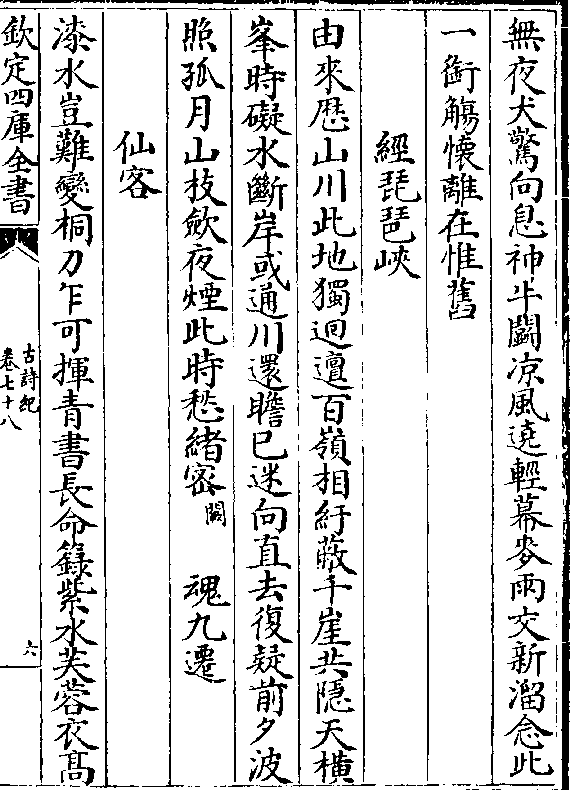 無夜犬驚向息神牛闘凉風遶輕幕麥雨交新溜念此
一銜觴懷離在惟舊
經琵琶峽
由來歴山川此地獨迴邅百嶺相紆蔽千崖共隠天横
峯時礙水斷岸或通川還瞻已迷向直去復疑前夕波
照孤月山枝歛夜煙此時愁緒密闕魂九遷
仙客
漆水豈難變桐刀乍可揮青書長命籙紫水芙蓉衣高
欽定四庫全書
古詩紀
卷七十八
六